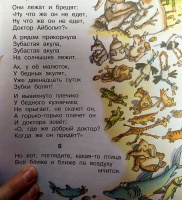 Они лежат и бредят:
«Ну что же он не едет,
Ну что же он не едет,
Доктор Айболит?»
А рядом прикорнула
Зубастая акула,
Зубастая акула
На солнышке лежит.
Ах, у её малюток,
У бедных акулят,
Уже двенадцать суток
Зубки болят!
И вывихнуто плечико
У бедного кузнечика;
Не прыгает, не скачет он,
А горько-горько плачет он
И доктора зовёт:
«О, где же добрый доктор?
Когда же он придёт?»
8
Но вот, поглядите, какая-то птица
Всё ближе и ближе по воздуху
мчится